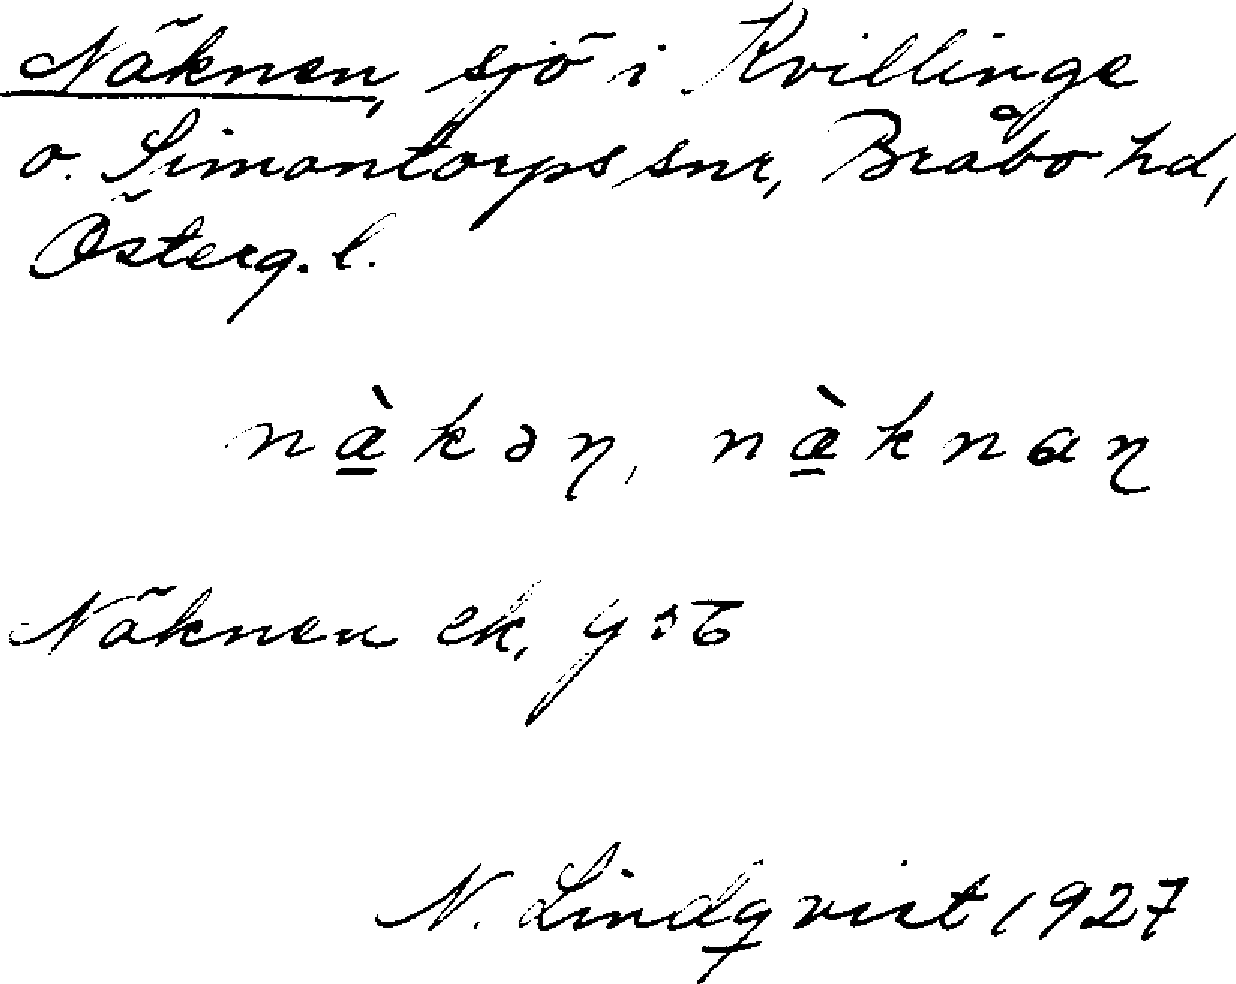 Näknen, sjö i Kvillinge
o. Simontorps snr, Bråbo hd,
Österg. l.
næ̀kəɳ, næ̀knaɳ
Näknen ek,
N. Lindqvist 1927